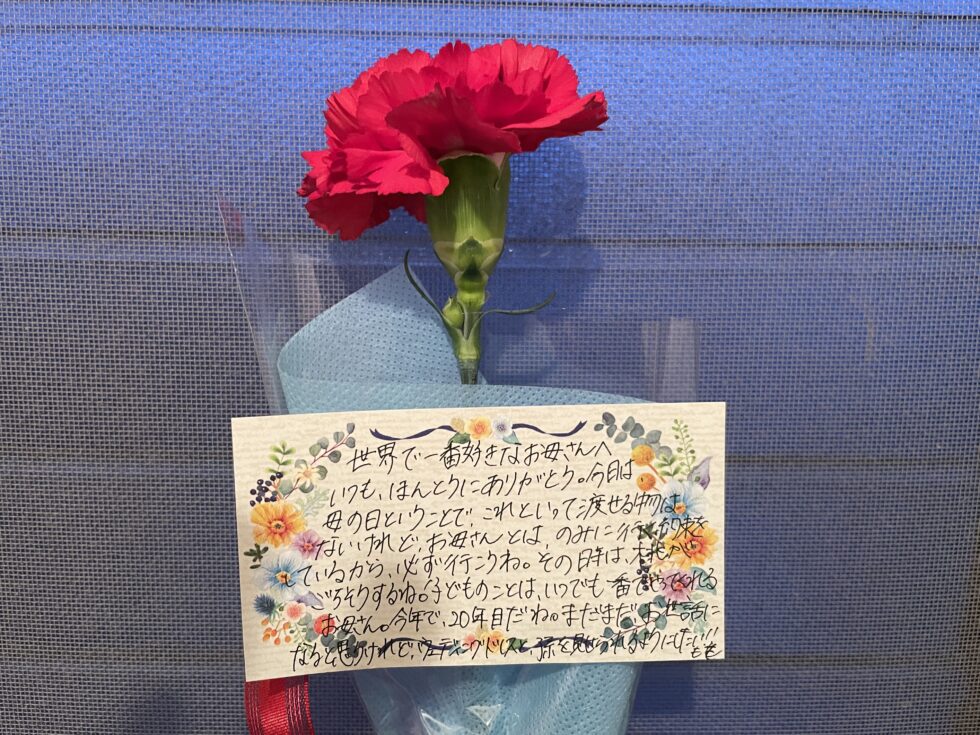 世界で一番好きなお母さんへ
いつも、ほんとうにありがとう。今日は
母の日ということで、これといって渡せる物は
ないけれど、お母さんとは、のみに行く約束を
しているから、必ず行こうね。その時は、が
ごちそうするね。子どものことは、いつでも一番で
お母さん。今年で、20年目だね。まだまだ、お世話に
なると思うけれど、ウェディングドレスと孫を見せられるようにしたい!!